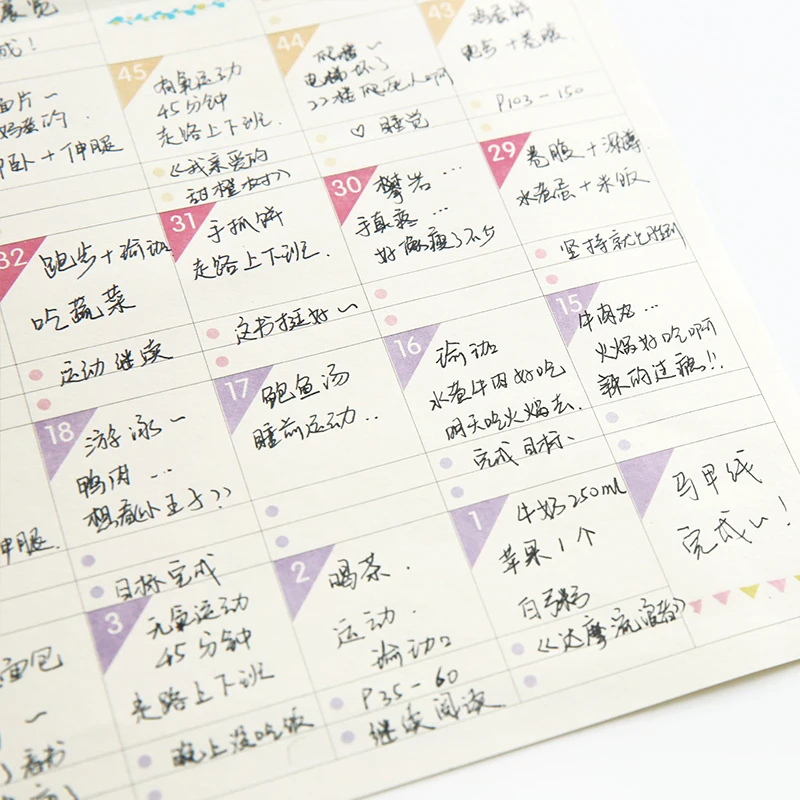 成!
面片~
卧+伸腿
45
有氧运动
45分钟
走路上下班.
《我亲爱的
甜橙树》
44
电梯坏了
♡ 睡觉
43
鸡蛋饼
跑步+卷腹.
P103-150
32
跑步+瑜伽
吃蔬菜
运动继续
31
手抓饼
走路上下班.
这书挺好~
30
攀岩...
手真疼...
好像瘦了不少
29
卷腹+深蹲.
水煮蛋+米饭
坚持就是胜利
18
游泳~
鸭肉...
目标完成
17
鲍鱼汤
睡前运动..
16
瑜伽
水煮牛肉好吃
明天吃火锅去.
完成目标.
15
牛肉丸...
火锅好吃啊
辣的过瘾!!
伸腿.
面包
~
看书
3
元氧运动
45分钟
走路上下班
晚上没吃饭
2
喝茶.
运动.
P35-60
继续阅读
1
牛奶250ml
苹果1个
白粥
《达摩流浪者》
马甲线
完成~!